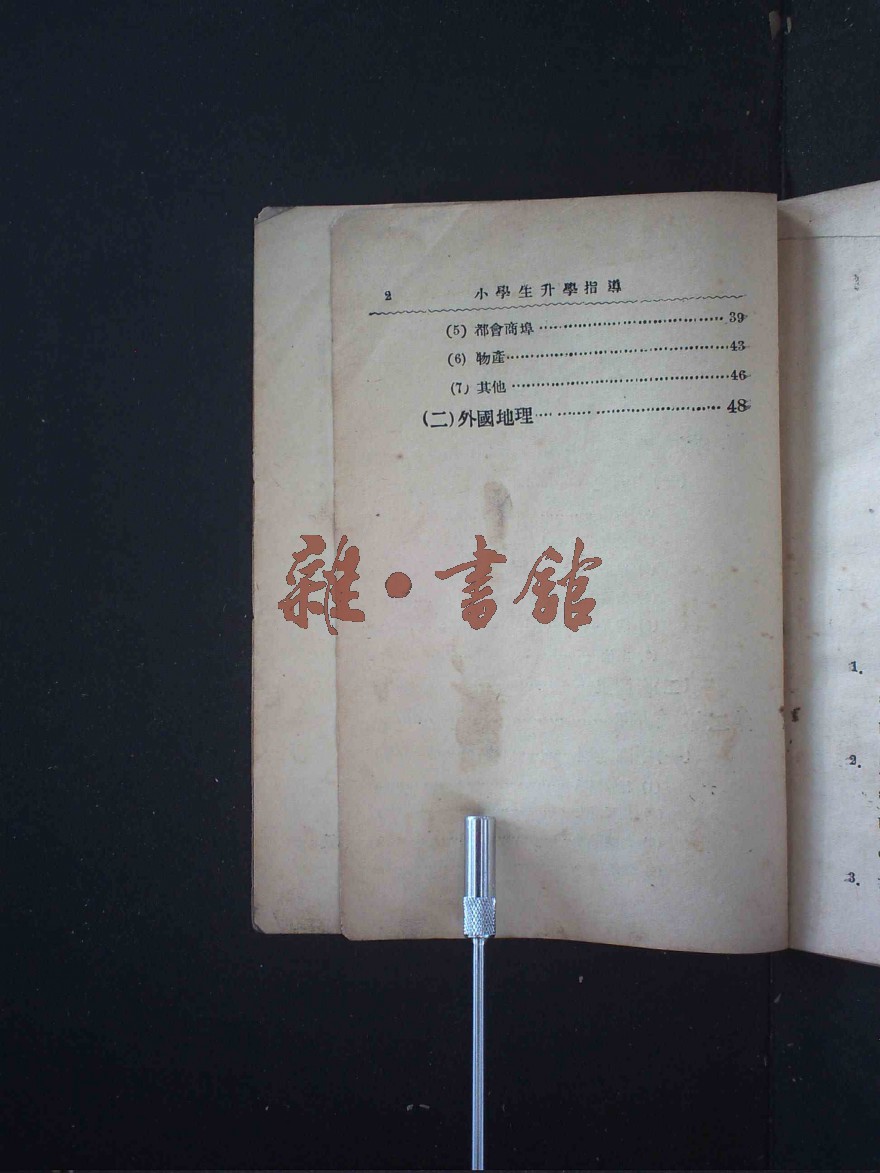 2 小學生升學指導
(5) 都會商埠 39
(6) 物產 43
(7) 其他 46
(二)外國地理 48
雜·書館
1.
2.
3.